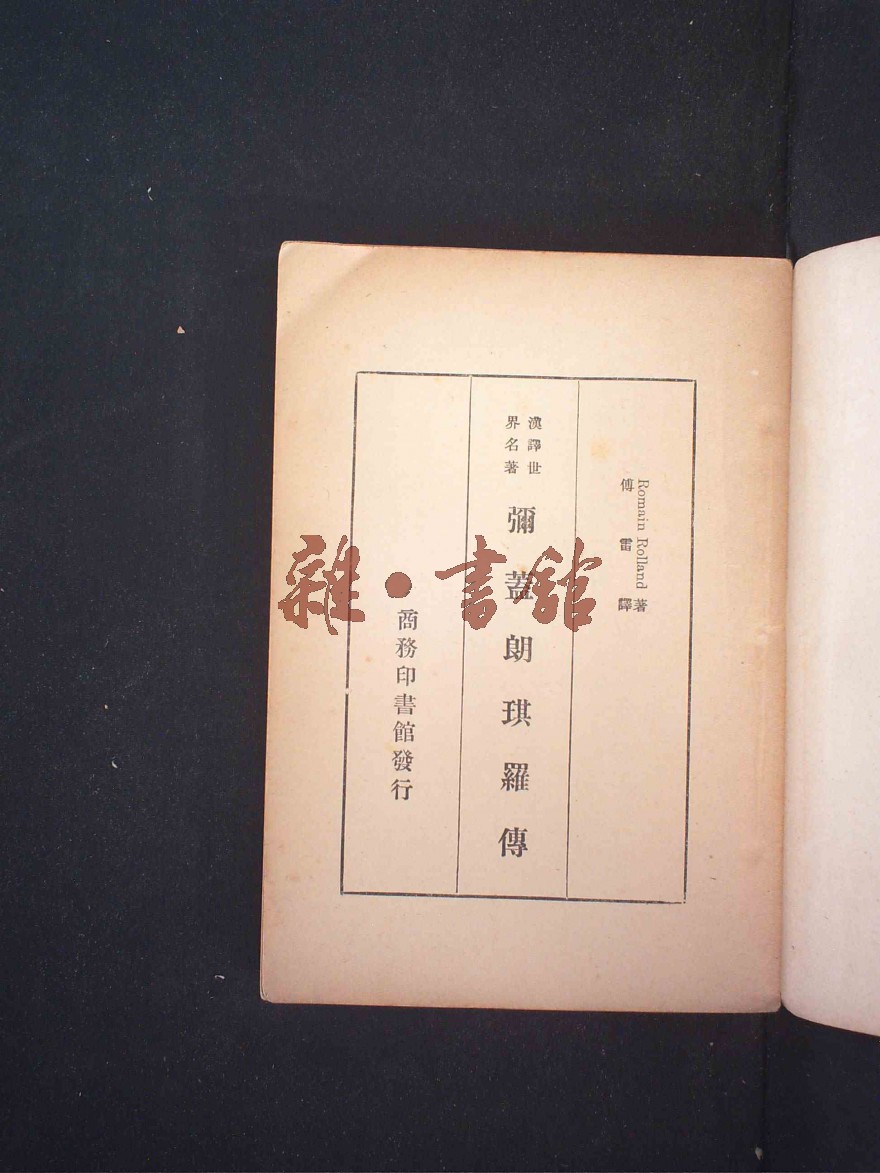 Romain Rolland 著
傅雷譯
漢譯世
界名著
彌蓋朗琪羅傳
商務印書館發行
雜·書館